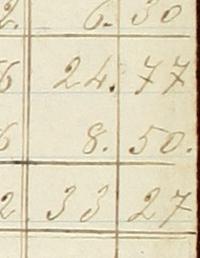 2. 6. 30
6 24. 77
6 8. 50.
2 33 27